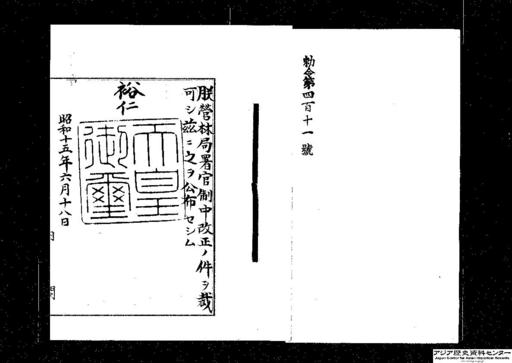 勅令第四百十一號
朕營林局署官制中改正ノ件ヲ裁
可シ茲ニ之ヲ公布セシム
裕仁
天皇
御璽
昭和十五年六月十八日
内閣
アジア歴史資料センター
Japan Center for Asian Historical Records